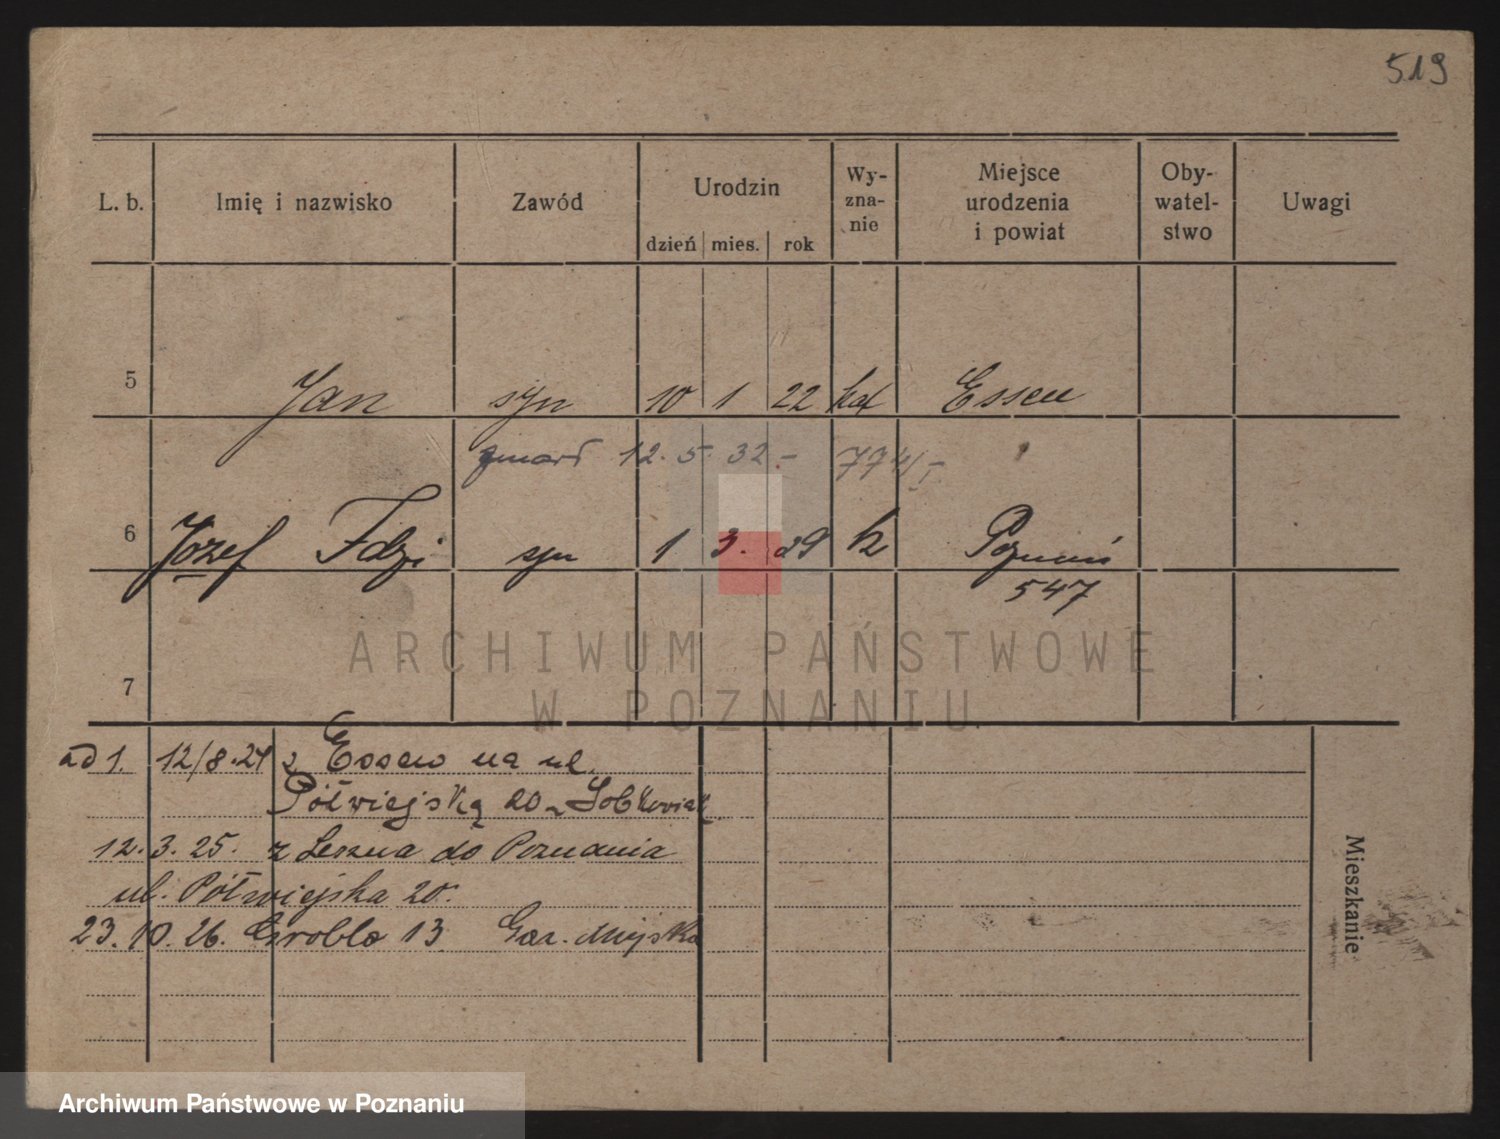 519
L. b. Imię i nazwisko Zawód Urodzin dzień mies. rok Wy-zna-nie Miejsce urodzenia i powiat Oby-watel-stwo Uwagi
5 Jan syn 10 1 22 kat Essen
zmarł 12. 5. 32 -
6 Józef syn 1 3. 29 k Poznań
547
ARCHIWUM PAŃSTWOWE
7
W POZNANIU
ad 1. 12/8.24 z Essen na ul.
Półwiejską 20
12. 3. 25. z Leszna do Poznania
ul. Półwiejska 20.
23. 10. 26. Grobla 13 Gaz. Miejska
Mieszkanie
Archiwum Państwowe w Poznaniu